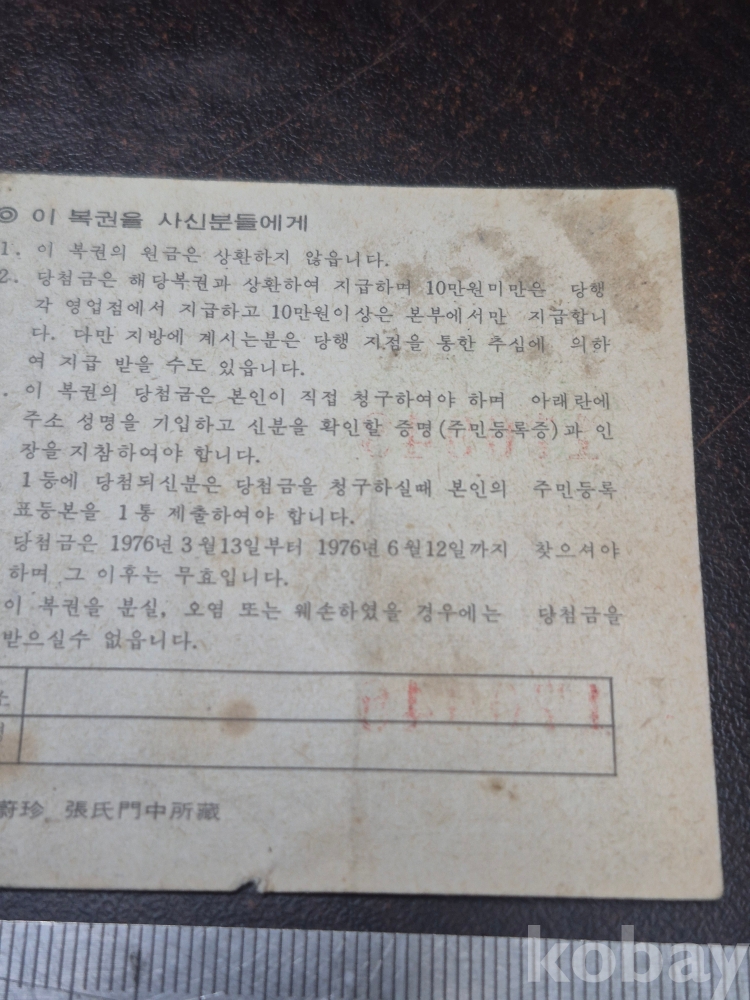 ◎ 이 복권을 사신분들에게
1. 이 복권의 원금은 상환하지 않읍니다.
2. 당첨금은 해당복권과 상환하여 지급하며 10만원미만은 당행
각 영업점에서 지급하고 10만원이상은 본부에서만 지급합니
다. 다만 지방에 계시는분은 당행 지점을 통한 추심에 의하
여 지급 받을 수도 있읍니다.
. 이 복권의 당첨금은 본인이 직접 청구하여야 하며 아래란에
주소 성명을 기입하고 신분을 확인할 증명(주민등록증)과 인
장을 지참하여야 합니다.
1등에 당첨되신분은 당첨금을 청구하실때 본인의 주민등록
표등본을 1통 제출하여야 합니다.
당첨금은 1976년 3월13일부터 1976년 6월12일까지 찾으셔야
하며 그 이후는 무효입니다.
이 복권을 분실, 오염 또는 훼손하였을 경우에는 당첨금을
받으실수 없읍니다.
소
蔚珍 張氏門中所藏
kobay